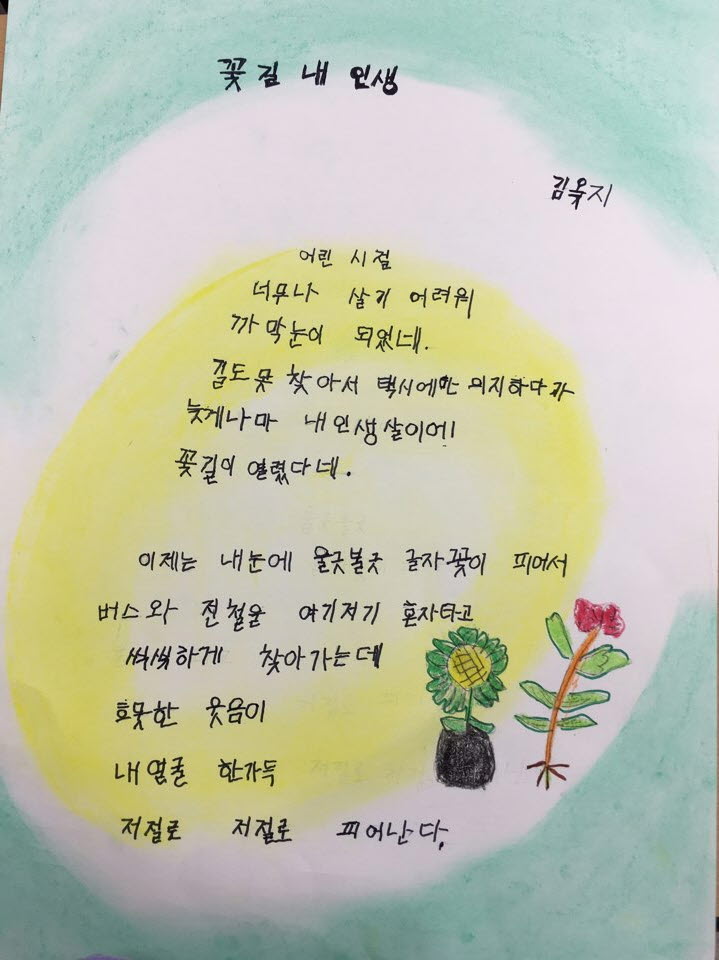 꽃길 내 인생
김옥지
어린 시절
너무나 살기 어려워
까막눈이 되었네.
길도 못 찾아서 택시에만 의지하다가
늦게나마 내 인생살이에
꽃길이 열렸다네.
이제는 내눈에 울긋불긋 글자꽃이 피어서
버스와 전철을 여기저기 혼자타고
씩씩하게 찾아가는데
흐뭇한 웃음이
내얼굴 한가득
저절로 저절로 피어난다.